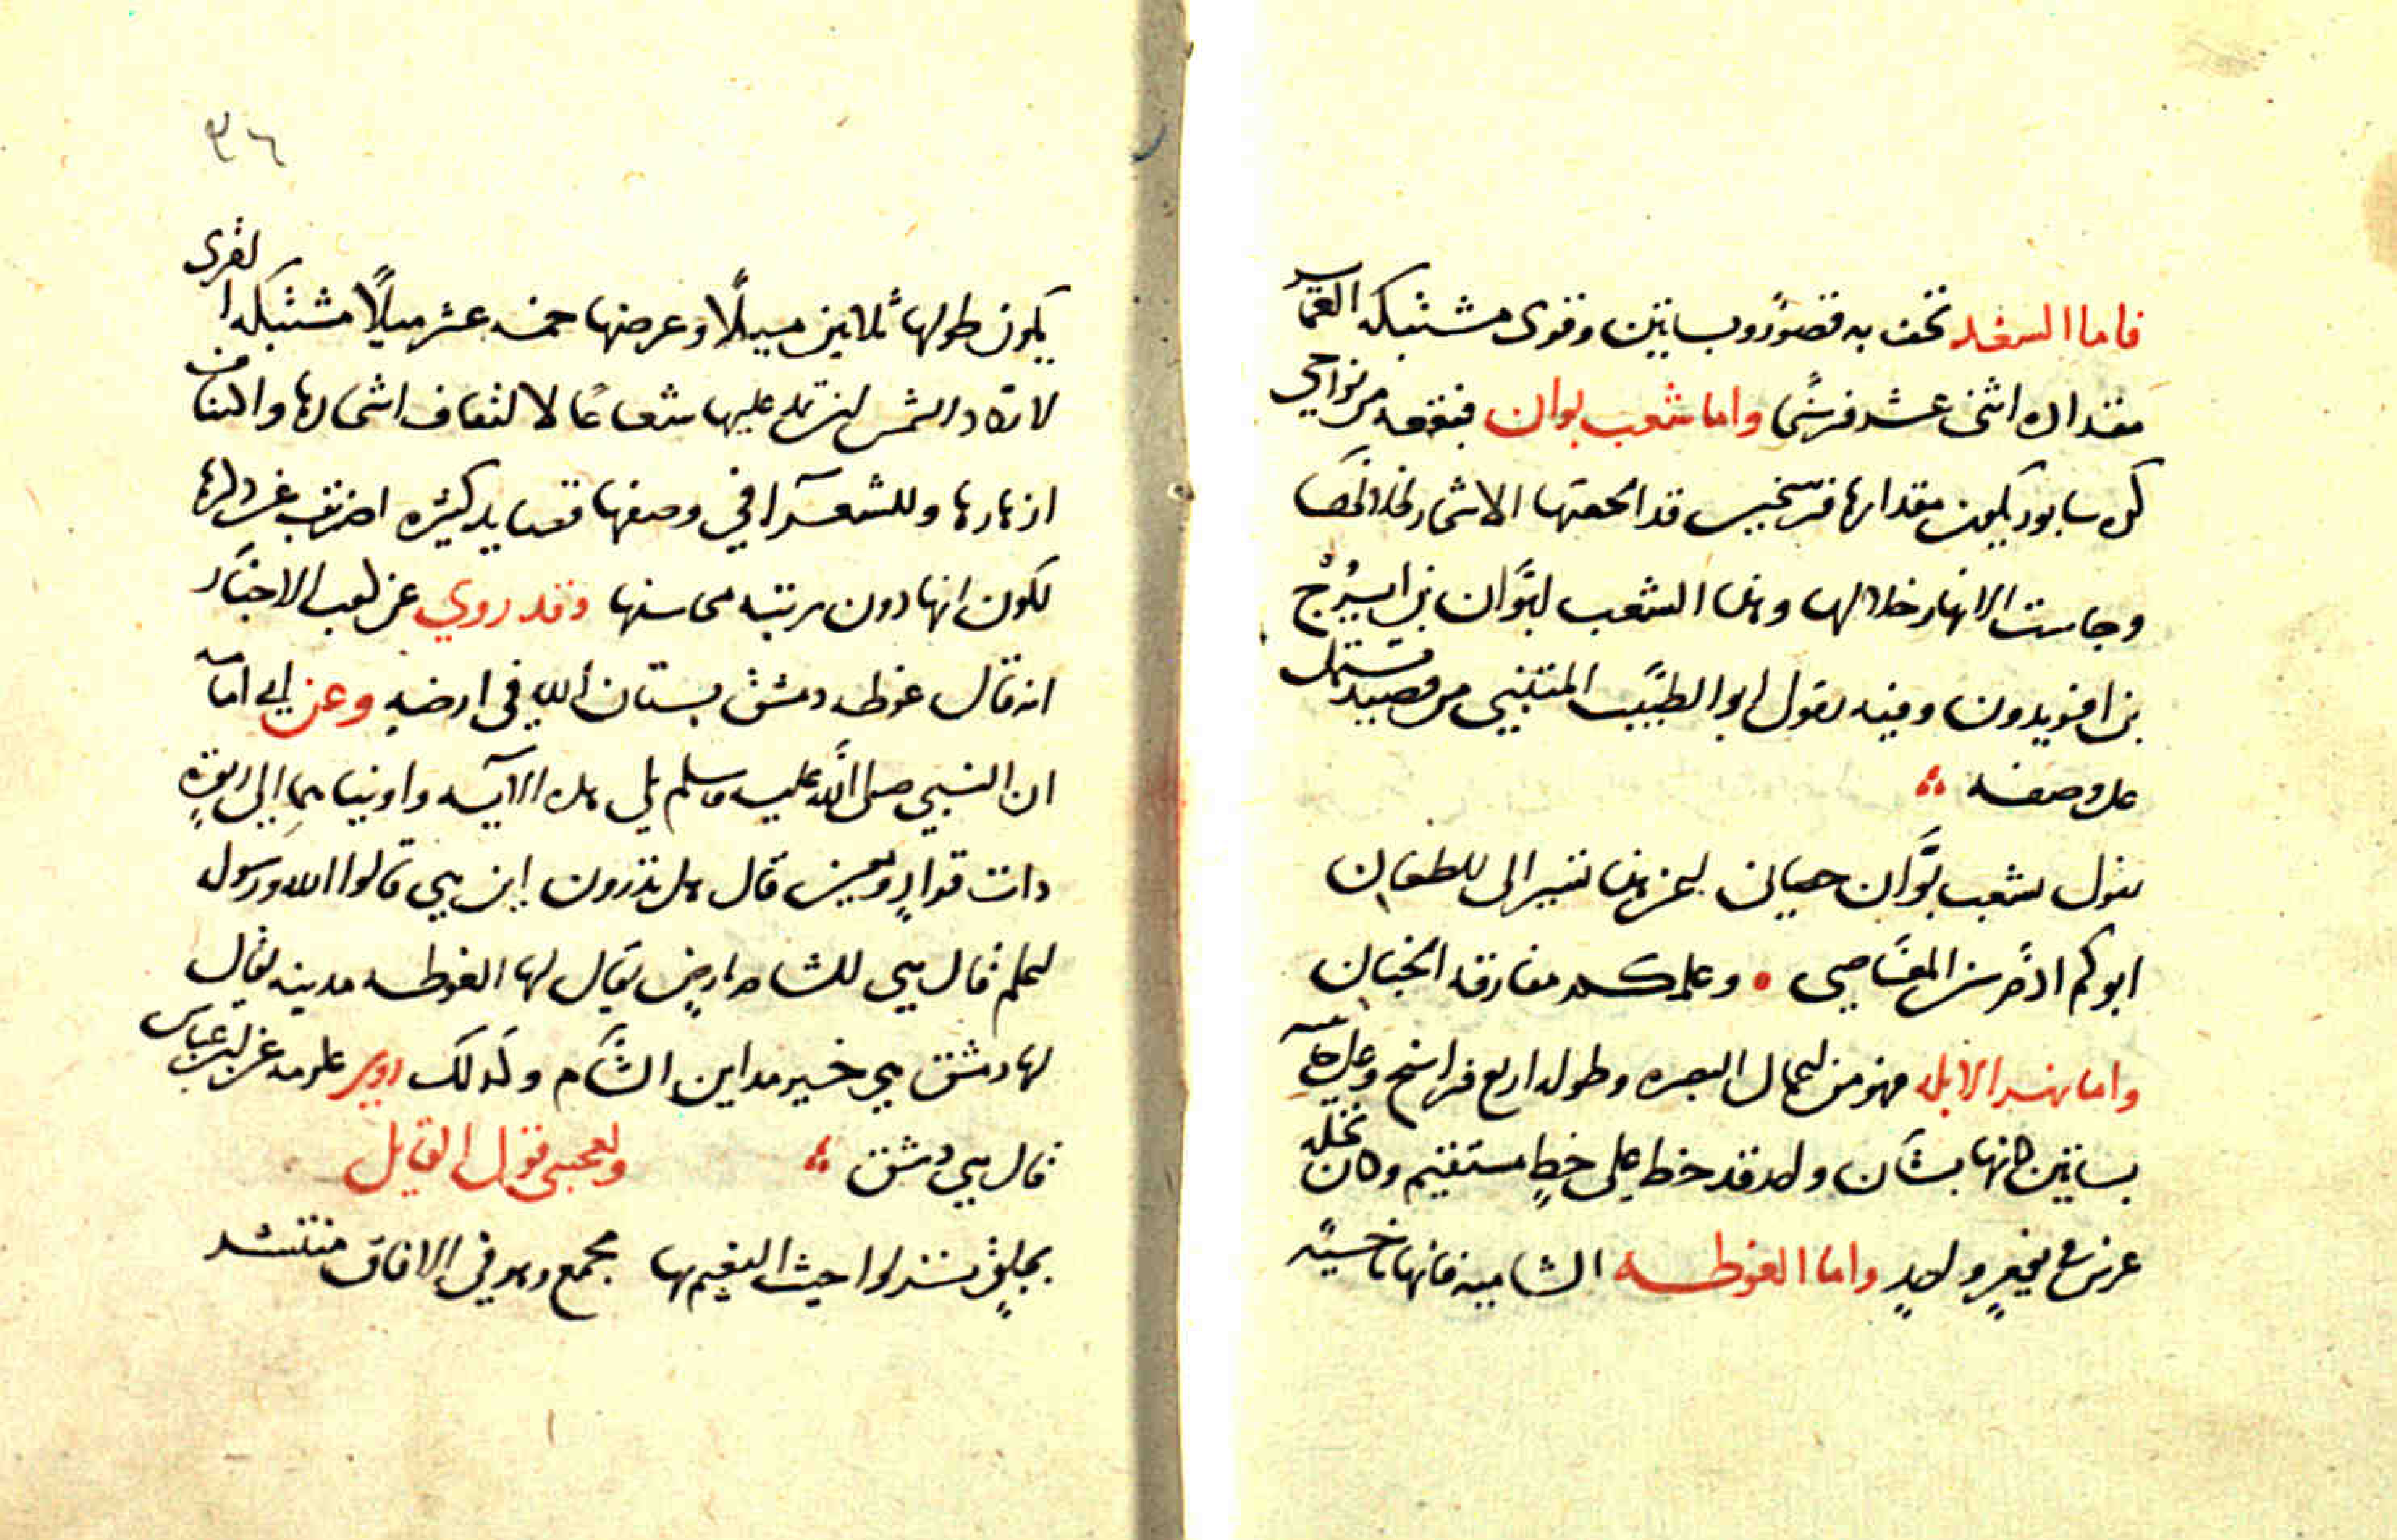 فاما السغد تحف به قصور وبساتين وقرى مشتبكة العمائر
مقداره اثنى عشر فرسخا واما شعب بوان فبقعة من نواحي
كره سابور يكون مقدارها فرسخين قد الحفتها الاشجار
وجاست الانهار خلالها وهذا الشعب لبوان بن ايرج
بن افريدون وفيه يقول ابو الطيب المتنبي من قصيدة تشتمل
على وصفه
يقول بشعب بوان حصاني اعن هذا تسير الى الطعان
ابوكم ادم سن المعاصي وعلمكم مفارقة الجنان
واما نهر الابله فهو من اعمال البصره وطوله اربع فراسخ وعلى جانبيه
بساتين كانها بستان واحد قد خط على خط مستقيم وكان نخله
غرس في يوم واحد واما الغوطه الشاميه فانها ناحية
٣٦
يكون طولها ثلاثين ميلا وعرضها خمسه عشر ميلا مشتبكه القرى
لا تكاد الشمس ان تقع عليها شعاعا لالتفاف اشجارها واكتناف
ازهارها وللشعرا في وصفها قصايد كثيره اضربت عن ذكرها
لكون انها دون مرتبه محاسنها وقد روي عن كعب الاحبار
انه قال غوطه دمشق بستان الله في ارضه وعن ابي امامه
ان النبي صلى الله عليه وسلم تلى هذه الآيه واويناهما الى ربوة
ذات قرار ومعين قال هل تدرون اين هي قالوا الله ورسوله
اعلم قال هي بالشام بارض يقال لها الغوطه مدينه يقال
لها دمشق هي خير مداين الشام وكذلك روى عكرمه عن ابن عباس
قال هي دمشق ويعجبني قول القايل
بجلق نزلوا حيث النعيم بها مجمع وهو في الافاق منتشر